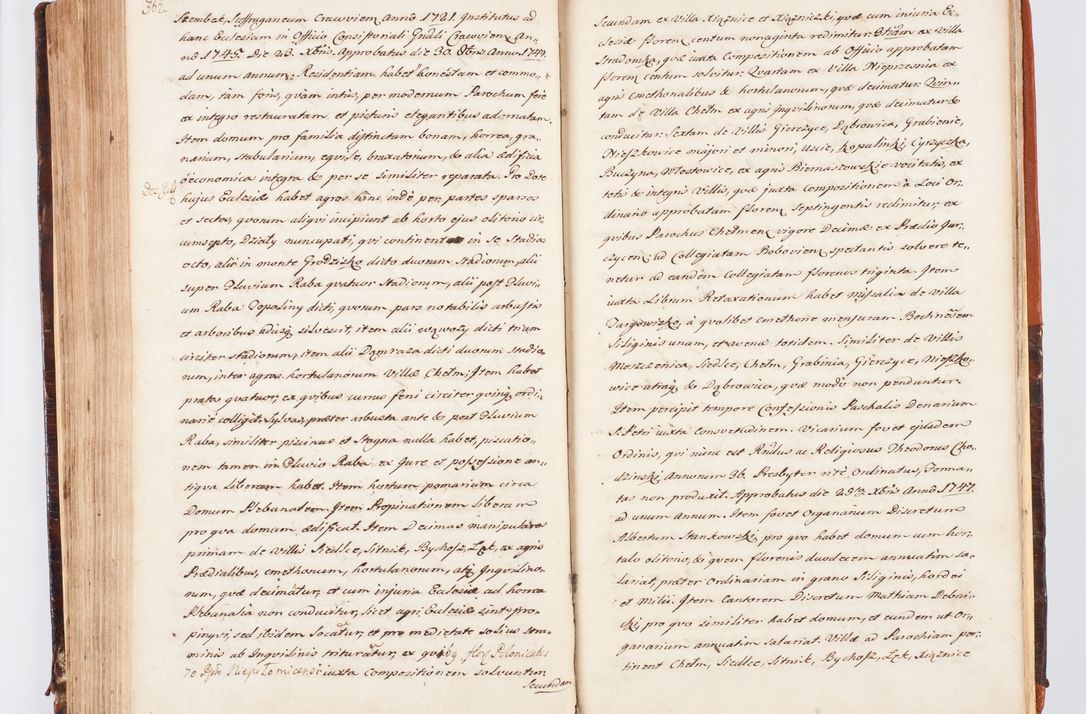 362.
Szembek, Suffraganeum Cracovien Anno 1721. Institutus ad
hanc Ecclesiam in Officio Consistoriali Gnāli Cracovien An-
nō 1745. Die 23. Xbris Approbatus die 30. Obris Anno 1747.
ad unum annum. Residentiam habet honestam et commo-
dam, tam foris, qvàm intùs, per modernum Parochum ferè
ex integro restauratam et picturis elegantibus adornatam.
Item domum pro familia distinctam bonam, horrea, gra-
narium, stubularium, eqvile, braxatorium, & alia ædificia
œconomica integra & per se similiter reparata. Pro Dote
hujus Ecclesiæ habet agros hinc indè per partes sparsos
et sectos, qvorum aliqvi incipiunt ab horto ejus olitorio cir-
cumsepto, Działy nuncupati, qvi continent in se Stadia
octo, alii in monte Grodzisko dicto duorum Stadiorum, alii
super Fluvium Raba qvatuor Stadiorum, alii post Fluvi-
um Raba Topoliny dicti, qvorum pars notabilis arbustis
et arboribus silvescit, item alii wąwozy dicti trium
circiter stadiorum, item alii Dąmraza dicti duorum Stadio-
rum, inter agros hortulanorum Villæ Chełm; Item habet
prata qvatuor, ex qvibus currus feni circiter qvinq ordi-
nariè colligit. Sylvas, præter arbusta ante & post Fluvium
Raba, similiter piscinas et Stagna nulla habet, piscatio-
nem tamen in Fluvio Raba ex Jure et possessione an-
tiqva liberam habet. Item hortum pomarium circa
Domum Plebanalem. Item Propinationem liberam
pro qva domum ædificat. Item Decimas manipulares
primam de Villis Siedlce, Sitnik, Bychosz, Łęk, ex agris
Prædialibus, cmethonum, hortulanorum, atq Inqvilino-
rum, qvæ decimatur, et cum injuria Ecclesiæ ad horrea
Plebanalia non conducitur, licet agri Ecclesiæ sint pro-
pinqvi, sed ibidem locatur, et pro medietate solius Stra-
minis ab Inqvilinis trituratur, ex qvi 69 flor. Polonicales
70 Niepołomicensi iuxta Compositionem solvuntur.
Secundam
Secundam ex Villa Xiąznice et Xiązniczki, qvæ cum injuria Ec-
clesiæ floren centum nonaginta redimitur. 3tiam ex Villa
Stradomka, qvæ iuxta Compositionem ab Officio approbatam
floren centum solvitur. Qvartam ex Villa Nieprzesnia ex
agris Cmethonalibus & hortulanorum, qvæ decimatur. Qvin-
tam de Villa Chełm ex agris Inqvilinorum, qvæ decimatur &
conducitur. Sextam de Villis Gierczyce, Dąbrowica, Grabienic,
Nieszkowice majori et minori, Uście, Kopalinki, Cyrzyczka,
Buczyna, Włostowice, ex agris Biernaszowskie vocitatis, ex
totis & integris Villis, qvæ juxta Compositionem à Loci Or-
dinario approbatam floren Septingentis redimitur, ex
qvibus Parochus Chełmen vigore Decimæ ex Prædio Gier-
czyce ad Collegiatam Bobovien spectantis solvere te-
netur ad eandem Collegiatam florenos triginta. Item
iuxta Librum Retaxationum habet missalia de Villa
Targowisko, à qvolibet cmethone mensuram Bochnensem
Siliginis unam, et avenæ totidem. Similiter de Villis
Moszczenica, Siedlce, Chełm, Grabinia, Gierczyce, Nieszko-
wice utraq & Dąbrowica, qvæ modò non penduntur.
Item percipit tempore Confessionis Paschalis Denarium
S. Petri iuxta Consvetudinem. Vicarium fovet ejusdem
Ordinis, qvi nunc est Rndus ac Religiosus Theodorus Cho-
dzinski Annorum 36. Presbyter ritè Ordinatus, Forma-
tas non produxit. Approbatus die 23. Xbris Annō 1747.
ad unum Annum. Item fovet Organarium Discretum
Albertum Stankowski, pro qvo habet domum cum hor-
tulo olitorio, & qvem florenis duodecem annuatim sa-
lariat, præter Ordinariam in grano Siliginis, hordei
et Milii. Item Cantorem Discretum Mathiam Debni-
cki, pro qvo similiter habet domum, et eundem ut Or-
ganarium annuatim salariat. Villæ ad Parochiam per-
tinent Chełm, Siedlce, Sitnik, Bychosz, Łęk, Xiąznice